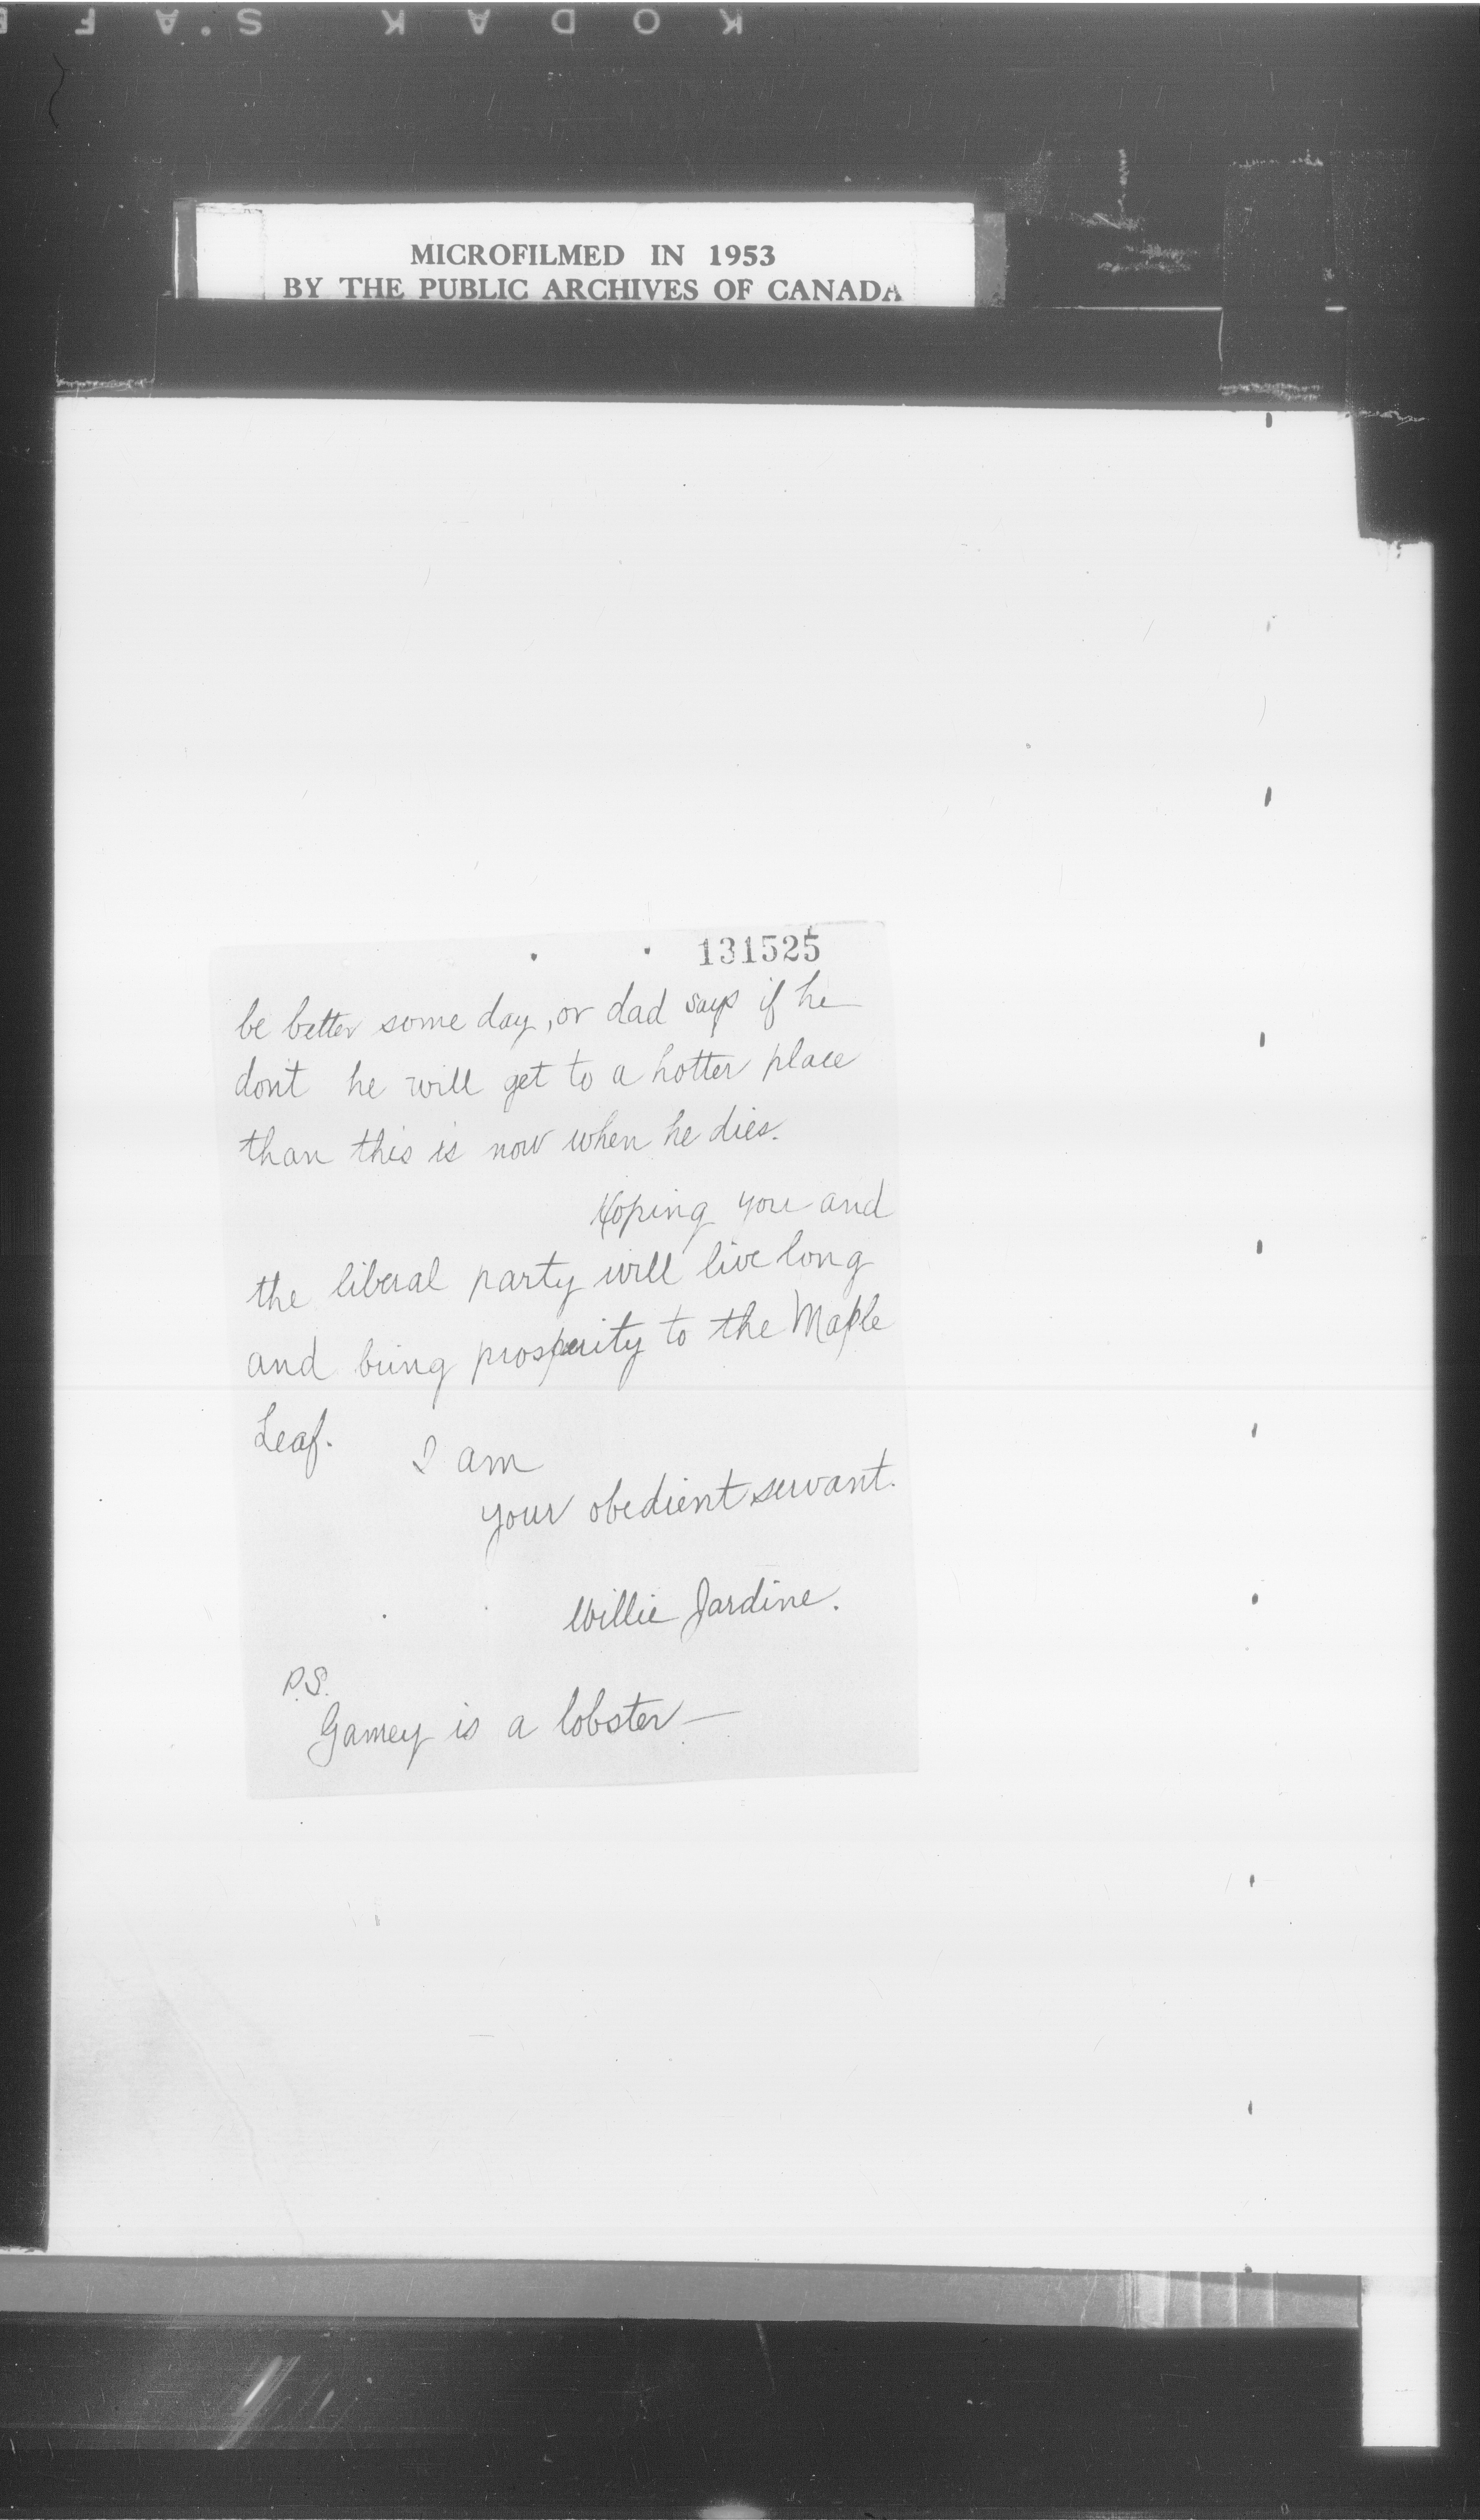 KODAK S.A F
MICROFILMED IN 1953
BY THE PUBLIC ARCHIVES OF CANADA
131525
be better some day, or dad says if he
dont he will get to a hotter place
than this is now when he dies.
Hoping you and
the liberal party will live long
and bring prosperity to the Maple
Leaf.
I am
your obedient servant.
Willie Jardine.
P.S.
Gamey is a lobster—